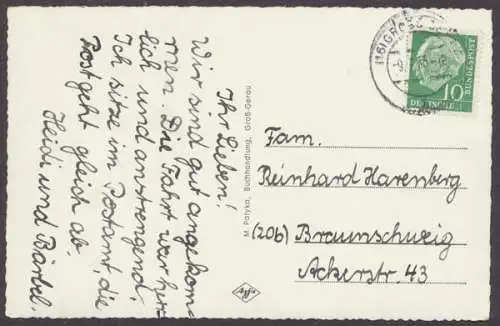 Ihr Lieben!
Wir sind gut angekom-
men. Die Fahrt war herr-
lich und anstrengend.
Ich sitze im Postamt, die
Post geht gleich ab.
Heidi und Bärbel.
M. Patyka, Buchhandlung, Groß-Gerau
(16) GROSS
10
DEUTSCHE
BUNDESPOST
Fam.
Reinhard Harenberg
(20b) Braunschweig
Ackerstr. 43